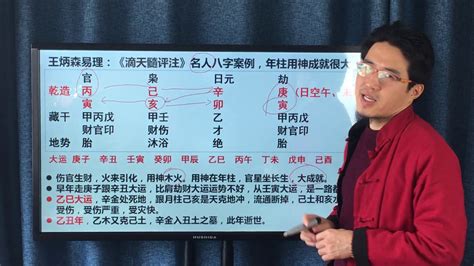 王炳森易理：《滴天髓评注》名人八字案例，年柱用神成就很大
官 枭 日元 劫
乾造 丙 己 辛 庚 （日空午、
寅 亥 卯 寅
藏干 甲丙戊 甲壬 乙 甲丙戊
财官印 财伤 才 财官印
地势 胎 沐浴 绝 胎
大运 庚子 辛丑 壬寅 癸卯 甲辰 乙巳 丙午 丁未 戊申 己酉
伤官生财，火来引化，用神木火。用神在年柱，官星坐长生，大成就。
早年走庚子跟辛丑大运，比肩劫财大运运势不好，从壬寅大运，是一路
乙巳大运，辛金处死地，跟月柱己亥是天克地冲，流通断掉，己土和亥水
受伤，受伤严重，受灾快。
乙丑年，乙木又克己土，辛金入丑土之墓，此年逝世。